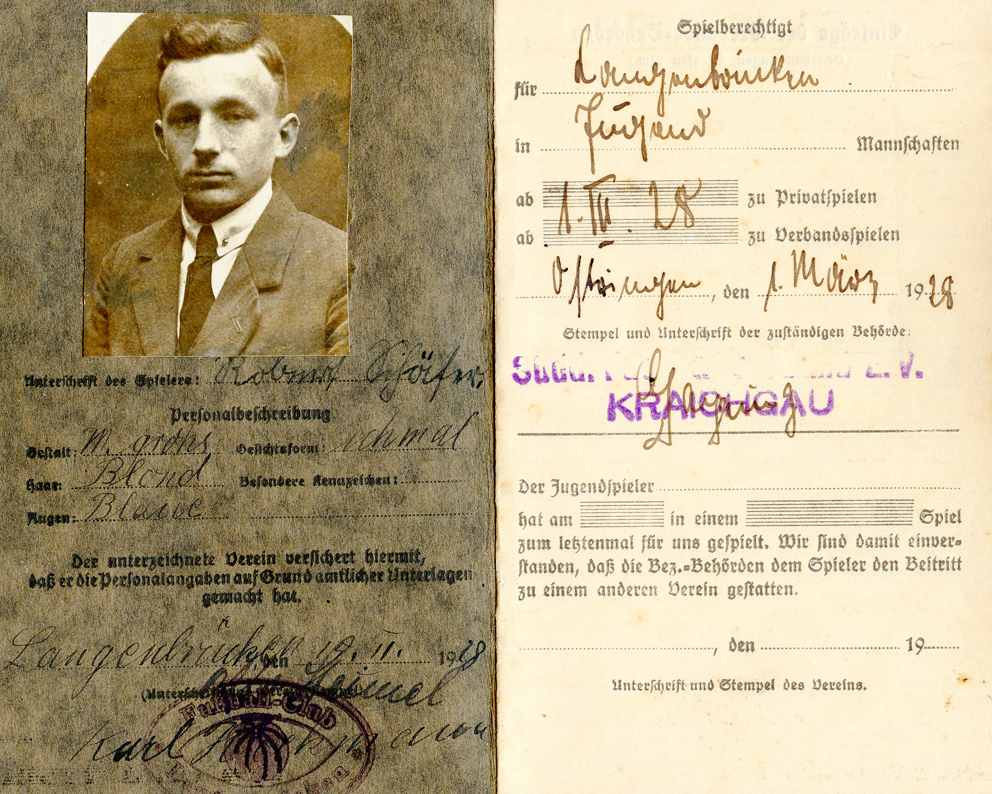 Unterschrift des Spielers: Schäfer
Personalbeschreibung
Gestalt: M. grohs Gesichtsform: schmal
Haar: Blond Besondere Kennzeichen:
Augen: Blaue
Der unterzeichnete Verein versichert hiermit,
daß er die Personalangaben auf Grund amtlicher Unterlagen
gemacht hat.
Langenbrücken, den 19. II. 1928
Karl
Fußball-Club
Spielberechtigt
für Langenbrücken
in Jugend Mannschaften
ab 1. III. 28 zu Privatspielen
ab zu Verbandsspielen
Östringen, den 1. März 1928
Stempel und Unterschrift der zuständigen Behörde:
E. V.
KRAICHGAU
Der Jugendspieler
hat am in einem Spiel
zum letztenmal für uns gespielt. Wir sind damit einver-
standen, daß die Bez.-Behörden dem Spieler den Beitritt
zu einem anderen Verein gestatten.
, den 19
Unterschrift und Stempel des Vereins.